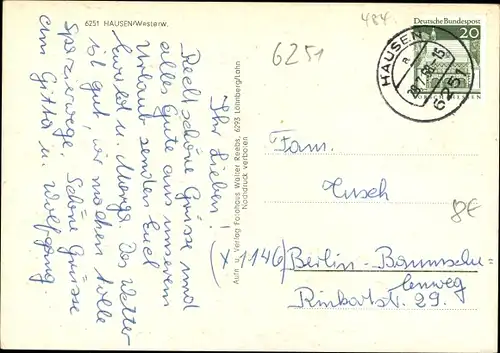 6251 HAUSEN/Westerw.
Ihr Lieben!
Recht schöne Grüsse und
alles Gute aus unserem
Urlaub senden Euch
u.
Das Wetter
ist gut, wir machen tolle
Spazierwege. Schöne Grüsse
an Gitta u. Wolfgang.
Aufn. u. Verlag Fotohaus Walter Reebs, 6293 Löhnberg/Lahn
Nachdruck verboten
484.
6251
Deutsche Bundespost
20
HAUSEN
a
6251
Fam.
Husch
8€
x 1146/Berlin-Baumschu-
lenweg
Rinkartstr. 29.